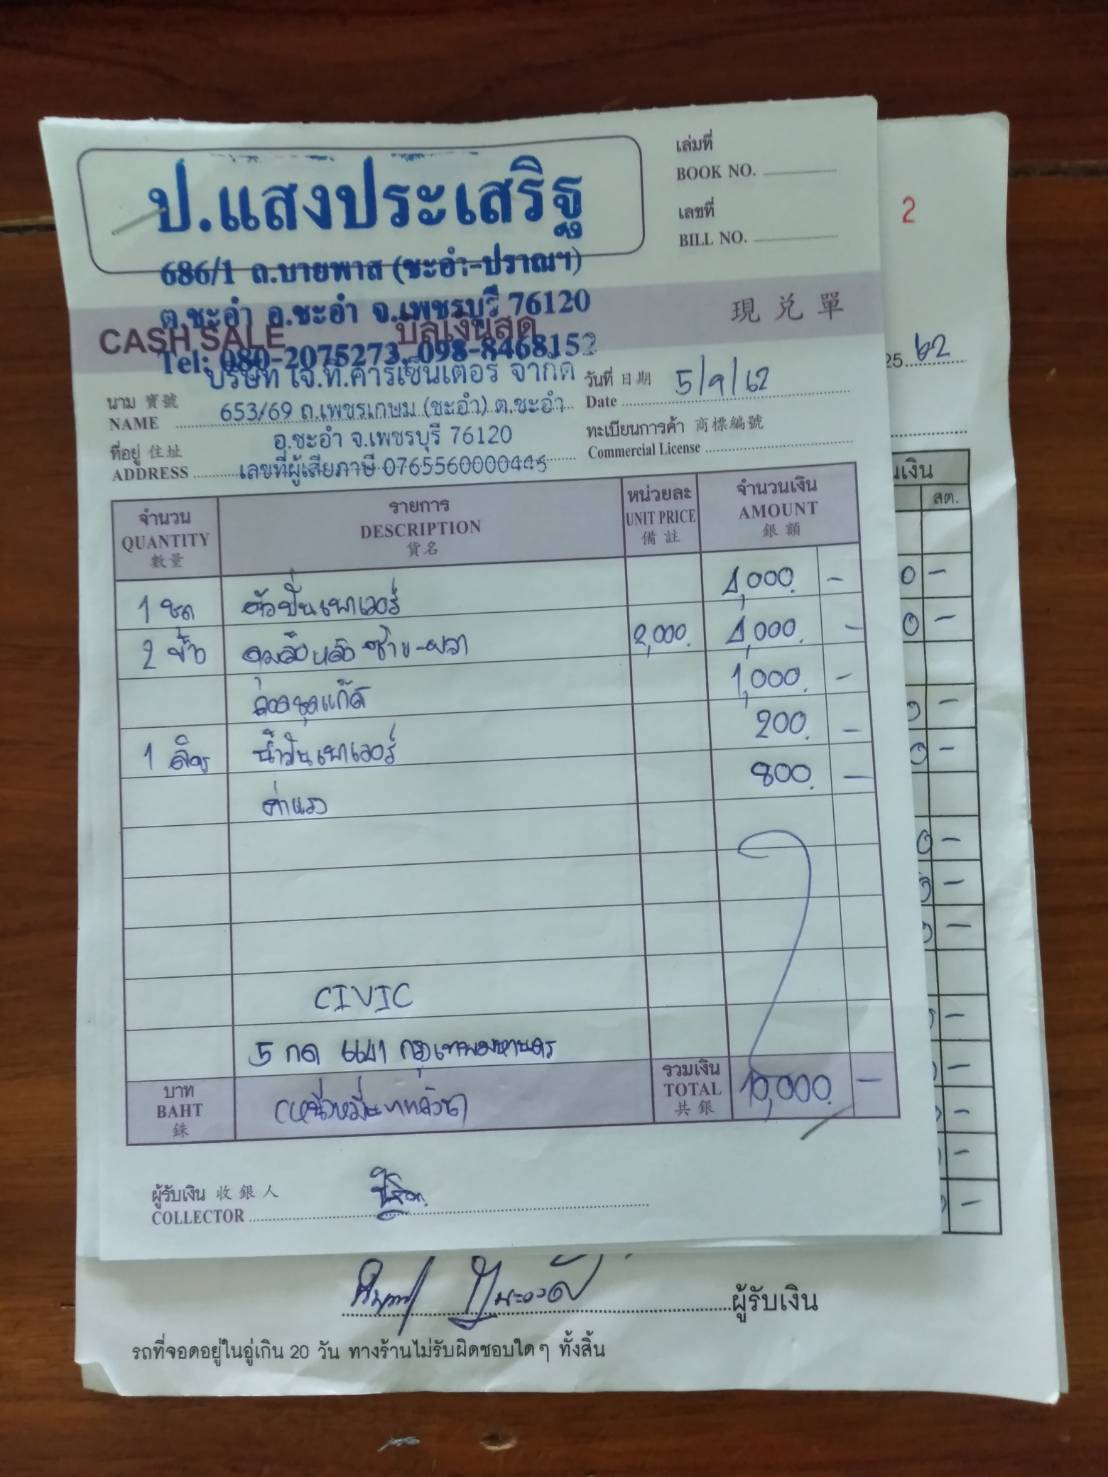 ป.แสงประเสริฐ
686/1 ถ.บายพาส (ชะอำ-ปราณฯ)
ต.ชะอำ อ.ชะอำ จ.เพชรบุรี 76120
Tel: 080-2075273, 098-8468152
เล่มที่
BOOK NO.
เลขที่
BILL NO.
CASH SALE บิลเงินสด 現兌單
นาม 寶號
NAME
บริษัท เจ.ที.คาร์เซ็นเตอร์ จำกัด
653/69 ถ.เพชรเกษม (ชะอำ) ต.ชะอำ
อ.ชะอำ จ.เพชรบุรี 76120
เลขที่ผู้เสียภาษี 0765560000445
ที่อยู่ 住址
ADDRESS
วันที่ 日期
Date 5/9/62
ทะเบียนการค้า 商標編號
Commercial License
จำนวน รายการ หน่วยละ จำนวนเงิน
QUANTITY DESCRIPTION UNIT PRICE AMOUNT
數量 貨名 備註 銀額
1 ชุด ตัวปั้นเพาเวอร์ 4,000 -
2 ข้าง ดุมล้อหลัง ซ้าย-ขวา 2,000 4,000 -
ชุดแก๊ส 1,000 -
1 ลิตร น้ำมันเพาเวอร์ 200 -
ค่าแรง 800 -
CIVIC
5 กด 6641 กรุงเทพมหานคร
บาท
BAHT
銖
(หนึ่งหมื่นบาทถ้วน)
รวมเงิน
TOTAL 10,000 -
共銀
ผู้รับเงิน 收銀人
COLLECTOR
2
25 62
เงิน
สต.
ผู้รับเงิน
รถที่จอดอยู่ในอู่เกิน 20 วัน ทางร้านไม่รับผิดชอบใดๆ ทั้งสิ้น